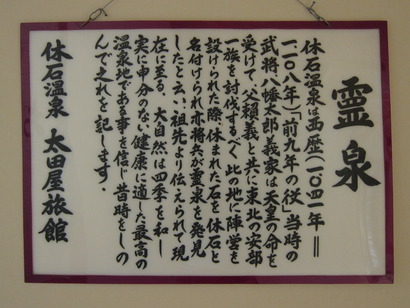 霊泉
休石温泉は西歴(一〇四一年＝
一一〇八年)「前九年の役」当時の
武将、八幡太郎義家は天皇の命を
受けて、父頼義と共に東北の安部
一族を討伐するべく此の地に陣営を
設けられた際、休まれた石を休石と
名付けられ亦将兵が霊泉を発見
したと云い祖先より伝えられて現
在に至る、大自然は四季を和し
実に申分のない健康に適した最高の
温泉地である事を信じ昔時をしの
んで之れを記します．
休石温泉 太田屋旅館